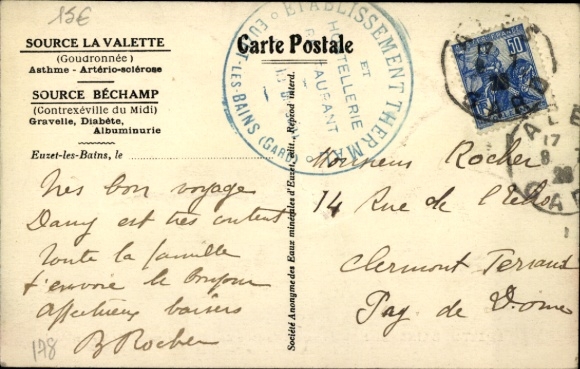 15€
SOURCE LA VALETTE
(Goudronnée)
Asthme - Artério-sclérose
SOURCE BÉCHAMP
(Contrexéville du Midi)
Gravelle, Diabète,
Albuminurie
Euzet-les-Bains, le
Carte Postale
ETABLISSEMENT THERMAL
ET
HOSTELLERIE
EUZET-LES-BAINS (GARD)
50
17
8
28
Très bon voyage
Dany est très content
Toute la famille
t'envoie le bonjour
Affectueux baisers
B Rocher
178
Société Anonyme des Eaux minérales d'Euzet, édit. Reprod interd.
Monsieur Rocher
14 Rue de
Clermont Ferrand
Puy de Dome